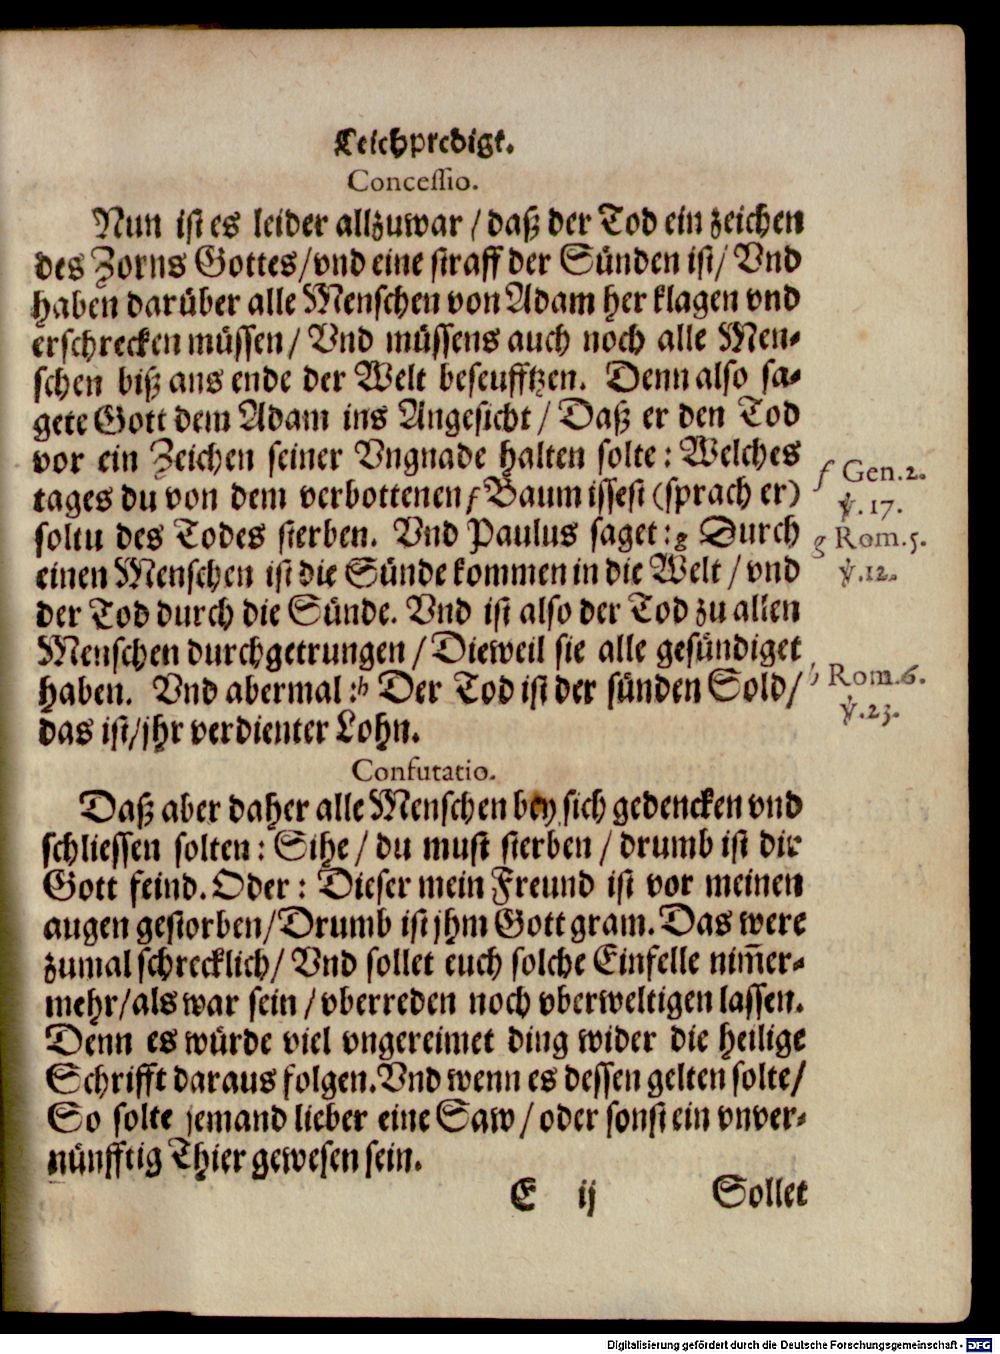 Leichpredigt.
Concessio.
Nun ist es leider allzuwar / daß der Tod ein zeichen
des Zorns Gottes/vnd eine straff der Sünden ist/ Vnd
haben darüber alle Menschen von Adam her klagen vnd
erschrecken müssen/ Vnd müssens auch noch alle Men-
schen biß ans ende der Welt beseufftzen. Denn also sa-
gete Gott dem Adam ins Angesicht / Daß er den Tod
vor ein Zeichen seiner Vngnade halten solte: Welches
tages du von dem verbottenen f Baum issest (sprach er)
soltu des Todes sterben. Vnd Paulus saget: g Durch
einen Menschen ist die Sünde kommen in die Welt / vnd
der Tod durch die Sünde. Vnd ist also der Tod zu allen
Menschen durchgetrungen / Dieweil sie alle gesündiget
haben. Vnd abermal: h Der Tod ist der sünden Sold/
das ist/jhr verdienter Lohn.
f Gen.2.
℣.17.
g Rom.5.
℣.12.
h Rom.6.
℣.23.
Confutatio.
Daß aber daher alle Menschen bey sich gedencken vnd
schliessen solten: Sihe / du must sterben / drumb ist dir
Gott feind. Oder: Dieser mein Freund ist vor meinen
augen gestorben/Drumb ist jhm Gott gram. Das were
zumal schrecklich/ Vnd sollet euch solche Einfelle nim̃er-
mehr/als war sein / vberreden noch vberweltigen lassen.
Denn es würde viel vngereimet ding wider die heilige
Schrifft daraus folgen. Vnd wenn es dessen gelten solte/
So solte jemand lieber eine Saw / oder sonst ein vnver-
nünfftig Thier gewesen sein.
E ij Sollet
Digitalisierung gefördert durch die Deutsche Forschungsgemeinschaft - DFG